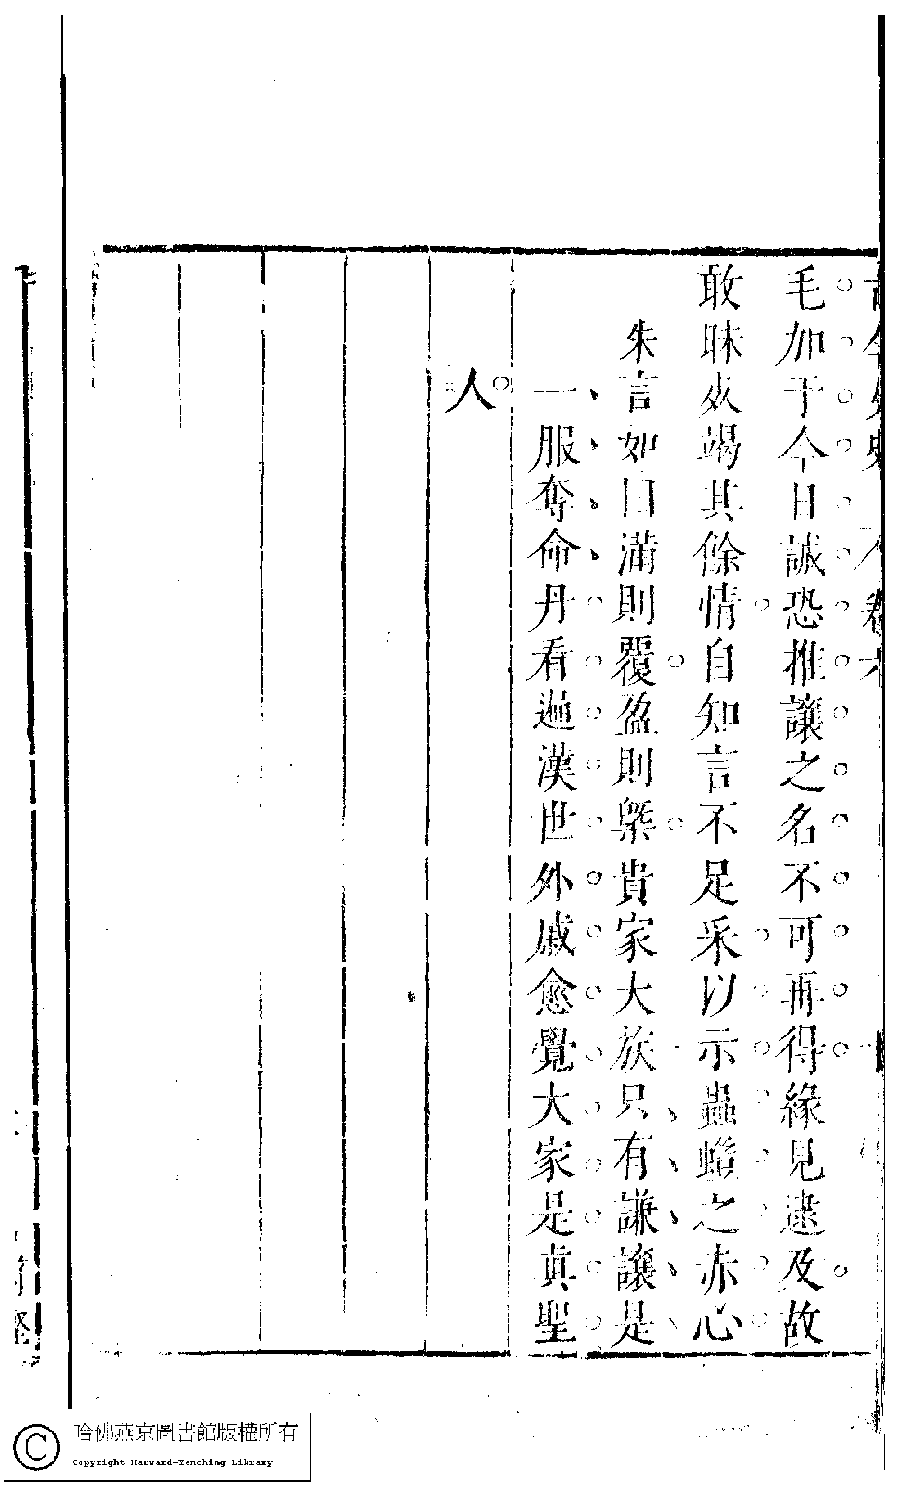 毛加于今日誠恐推讓之名不可再得緣見逮及故
敢昧死竭其餘情自知言不足采以示蟲螘之赤心
朱言如日滿則覆盈則槩貴家大族只有謙讓是
一服奪命丹看遍漢世外戚愈覺大家是真聖
人
哈佛燕京圖書館版權所有
Copyright Harvard-Yenching Library